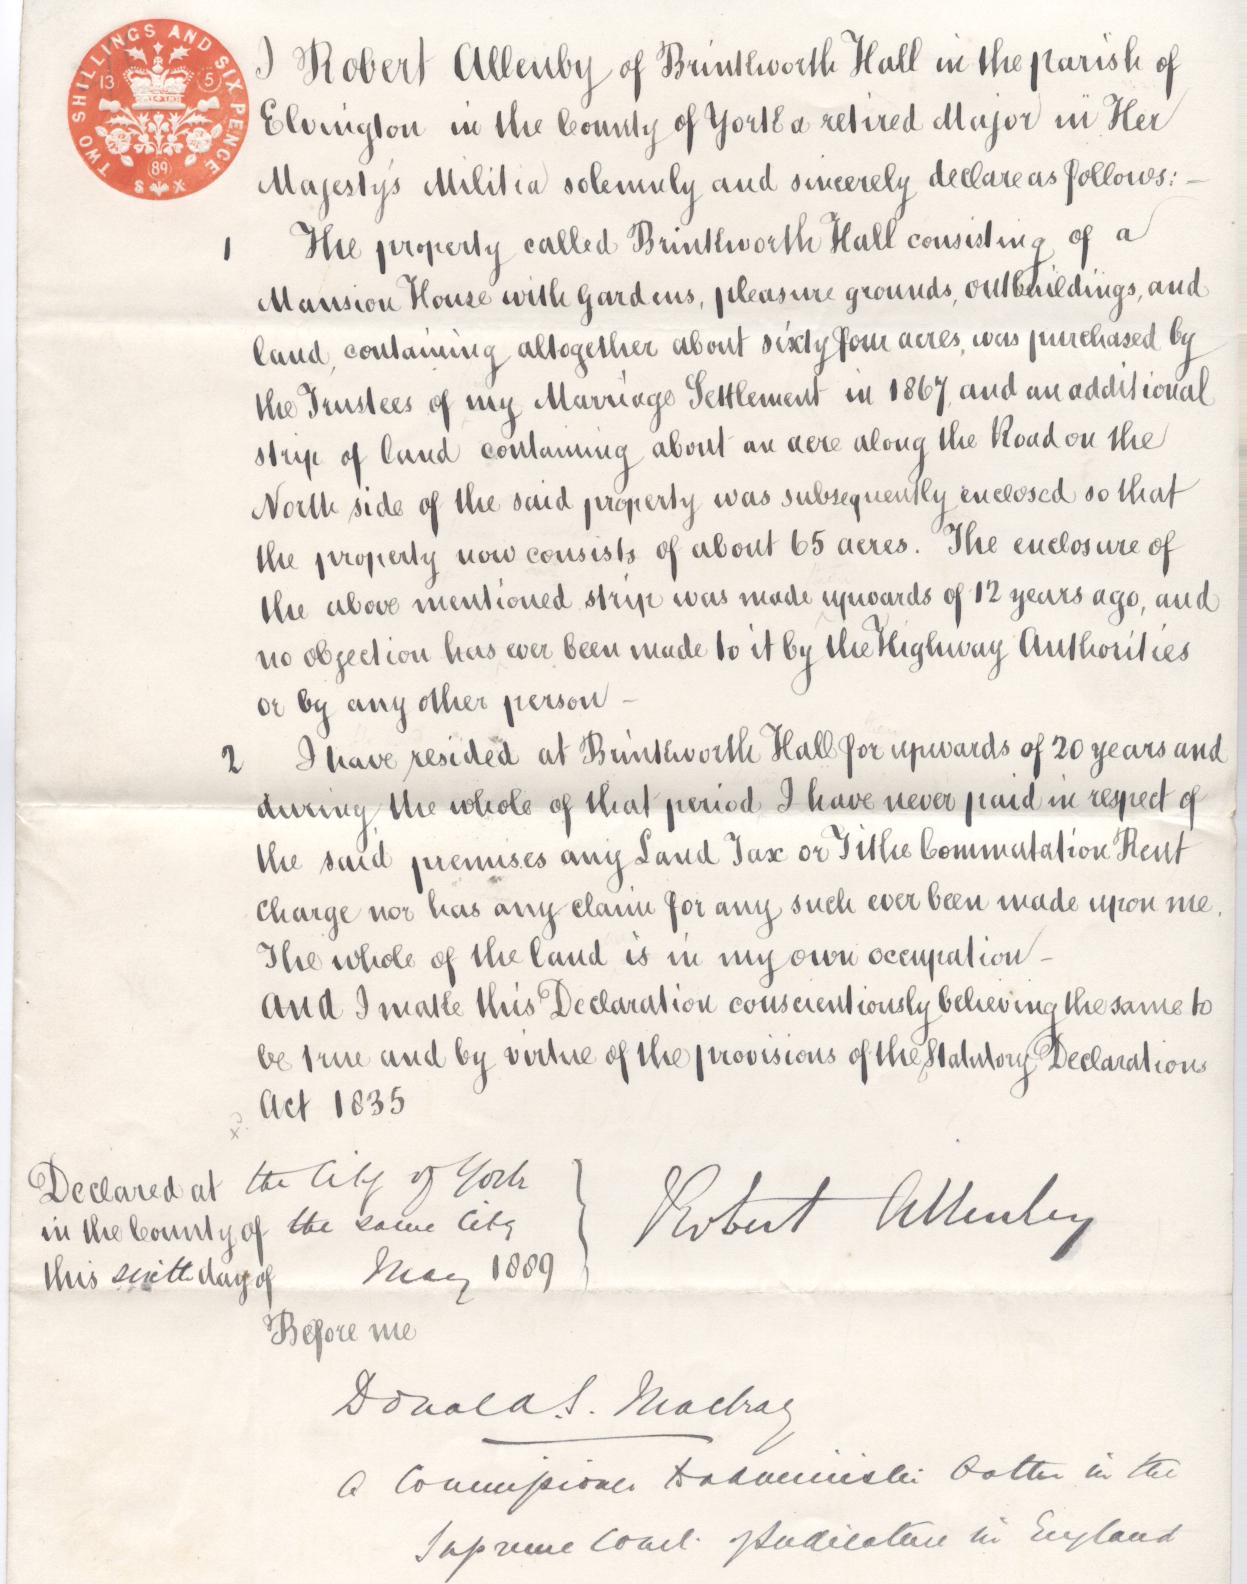 TWO SHILLINGS AND SIX PENCE
13 5
89
S X
I Robert Allenby of Brinkworth Hall in the parish of
Elvington in the County of York a retired Major in Her
Majesty's Militia solemnly and sincerely declare as follows:—
1 The property called Brinkworth Hall consisting of a
Mansion House with Gardens, pleasure grounds, outbuildings, and
land, containing altogether about sixty four acres, was purchased by
the Trustees of my Marriage Settlement in 1867, and an additional
strip of land containing about an acre along the Road on the
North side of the said property was subsequently enclosed so that
the property now consists of about 65 acres. The enclosure of
the above mentioned strip was made upwards of 12 years ago, and
no objection has ever been made to it by the Highway Authorities
or by any other person —
2 I have resided at Brinkworth Hall for upwards of 20 years and
during the whole of that period I have never paid in respect of
the said premises any Land Tax or Tithe Commutation Rent
charge nor has any claim for any such ever been made upon me.
The whole of the land is in my own occupation —
And I make this Declaration conscientiously believing the same to
be true and by virtue of the provisions of the Statutory Declarations
Act 1835
x
Declared at the City of York
in the County of the same City
this sixth day of May 1889
Robert Allenby
Before me
Donald S. Mackay
A Commissioner to administer Oaths in the
Supreme Court of Judicature in England